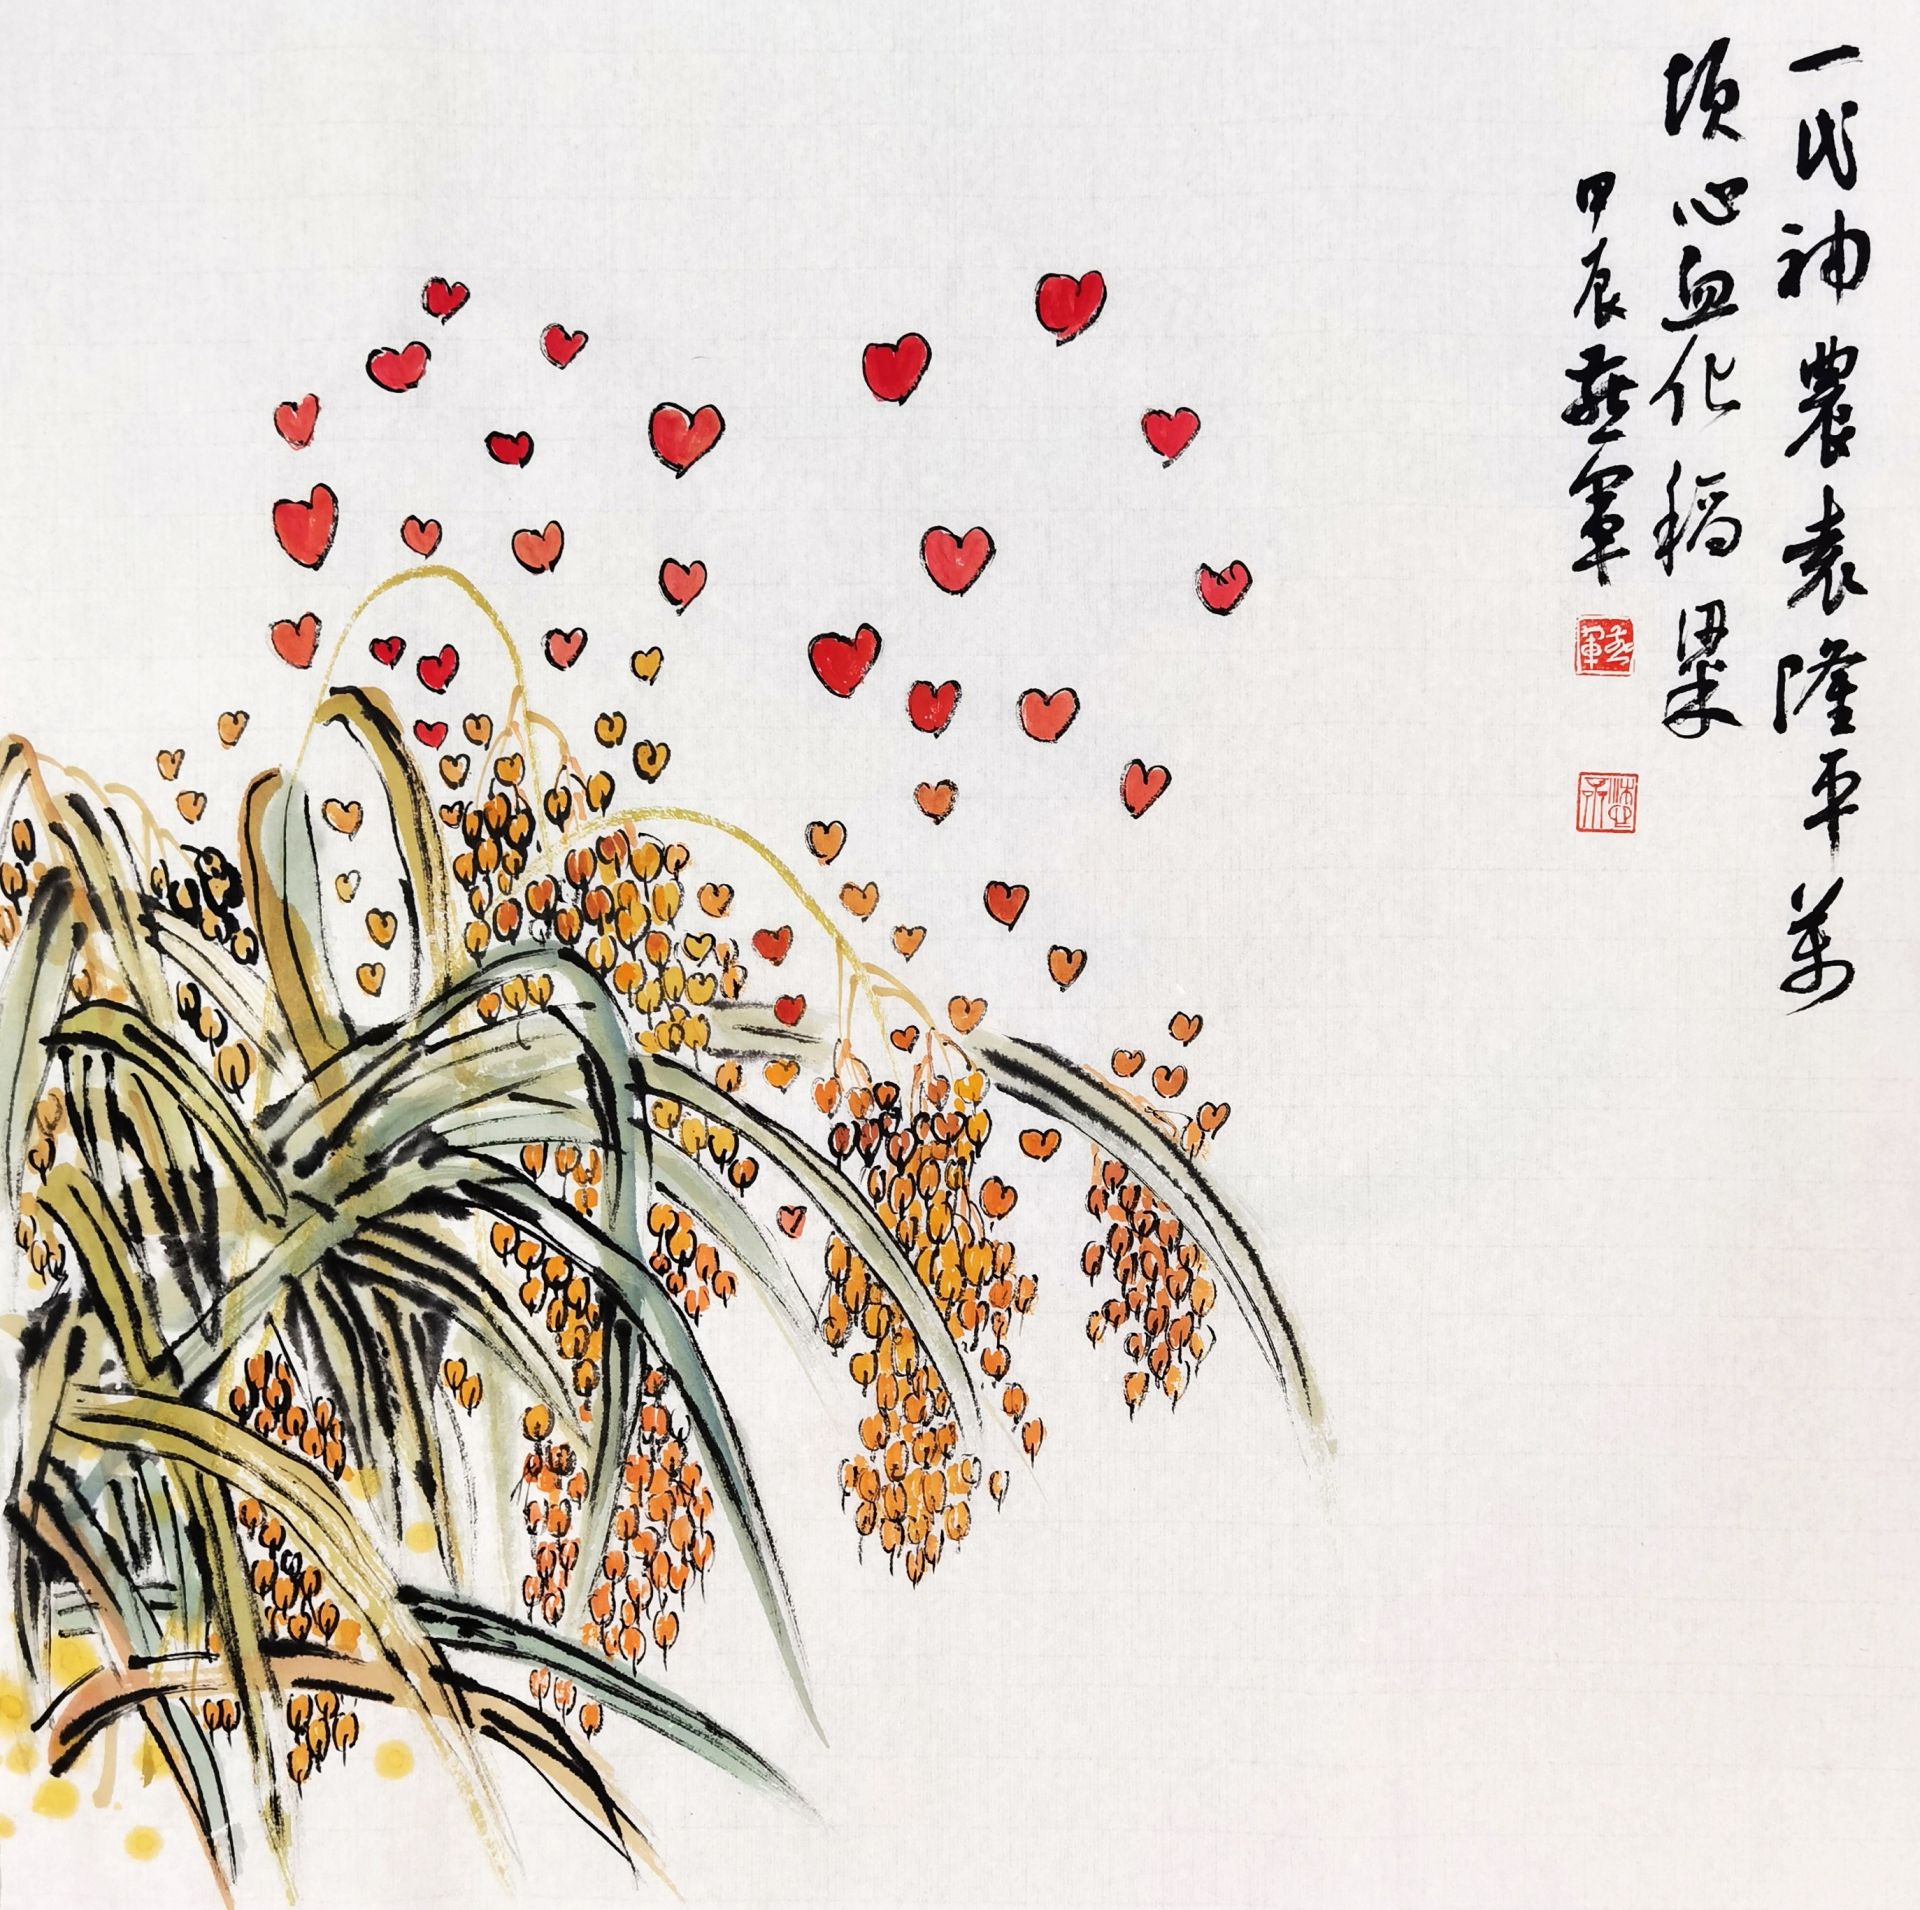 一代神農袁隆平萬
頃心血化稻粱
甲辰燕軍